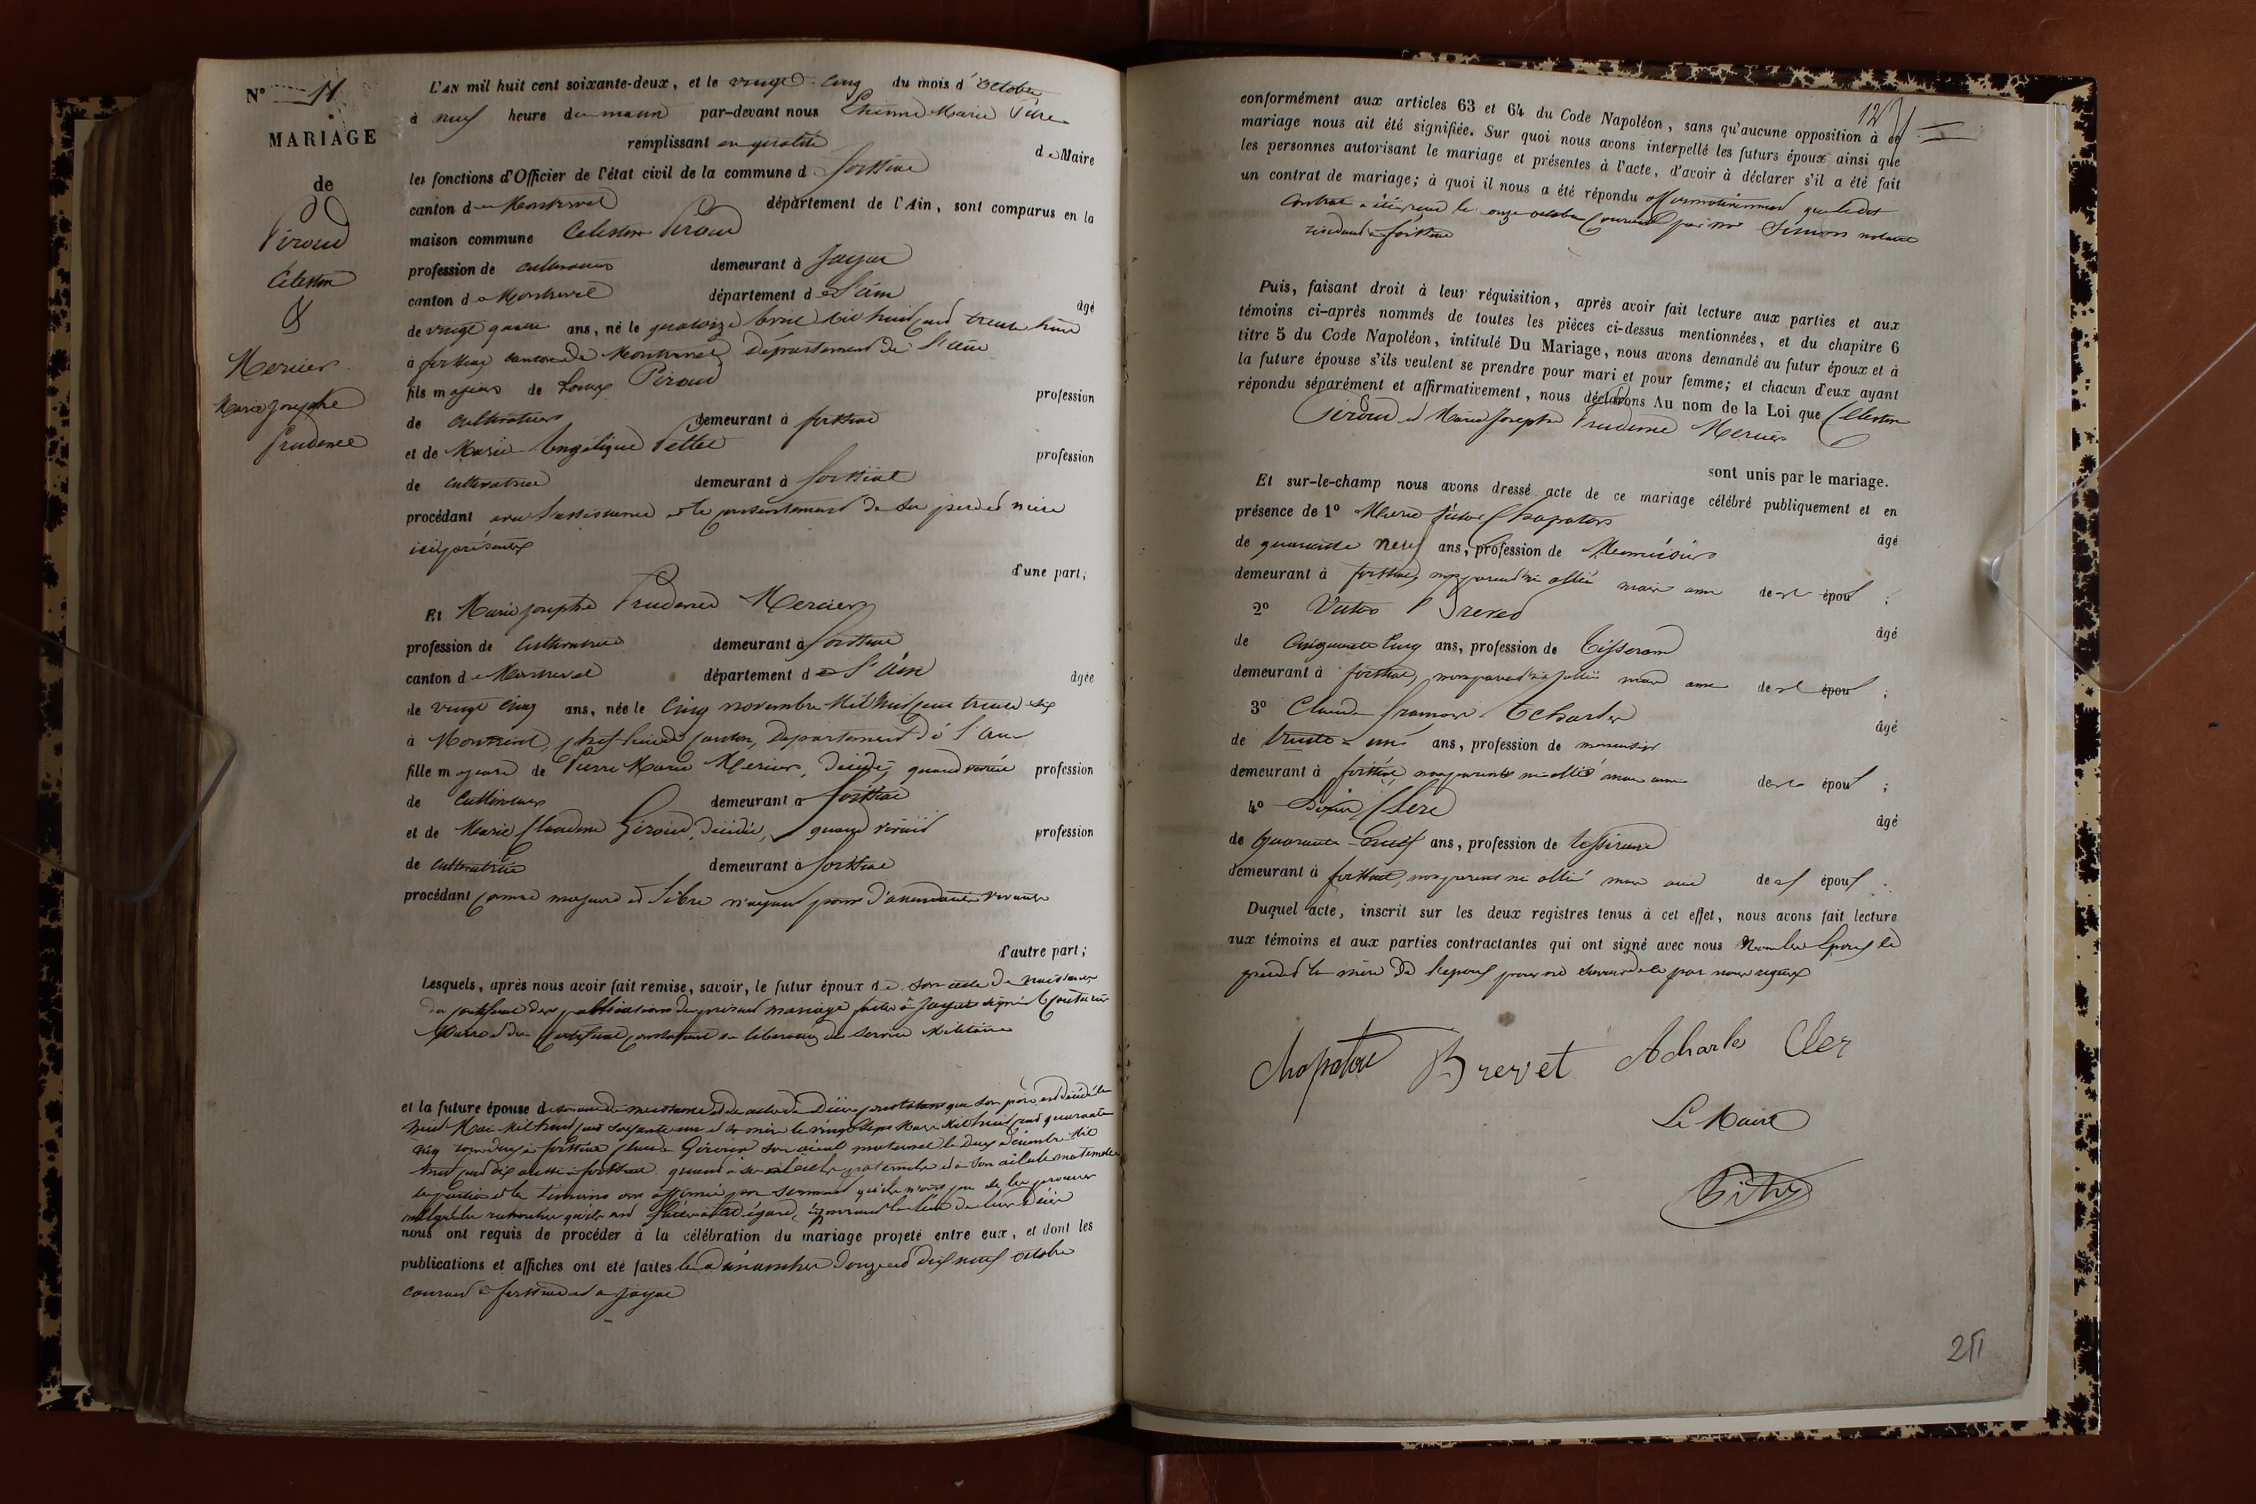 N° 11
MARIAGE
de
Piroud
Célestin
&
Mercier
Marie Josephe
Prudence
L'AN mil huit cent soixante-deux, et le vingt-cinq du mois d'octobre
à neuf heure du matin par-devant nous Etienne Marie Pitre
remplissant en qualité de Maire
les fonctions d'Officier de l'état civil de la commune d
canton de Montrevel département de l'Ain, sont comparus en la
maison commune Celestin Piroud
profession de cultivateur demeurant à Jayat
canton de Montrevel département de L'ain âgé
de vingt quatre ans, né le quatorze Avril Mil huit cent trente huit
à canton de Montrevel, Département de l'ain
fils majeur de Piroud profession
de cultivateur demeurant à
et de Marie Angélique profession
de cultivatrice demeurant à
procédant avec l'assistance et le consentement de ses père et mère
ici présents
d'une part;
Et Marie Josephe Prudence Mercier
profession de Cultivatrice demeurant à
canton de Montrevel département de L'ain âgée
de vingt cinq ans, née le Cinq novembre Mil huit cent trente six
à Montrevel, chef lieu de Canton, Département de l'ain
fille majeure de Pierre Marie Mercier, Décédé, quand vivait profession
de Cultivateur demeurant à
et de Marie Claudine décédée, quand vivait profession
de cultivatrice demeurant à
procédant comme majeure et libre n'ayant point d'ascendants vivants
d'autre part;
Lesquels, après nous avoir fait remise, savoir, le futur époux de son acte de naissance
du certificat des publications du présent mariage faites à Jayat signé
Maire et du Certificat constatant sa libération du service Militaire
et la future épouse de son acte de naissance et de actes de Décès constatant que son père est décédé le
neuf Mai Mil huit cent soixante un et sa mère le vingt sept Mars Mil huit cent quarante
cinq son aieul maternel le deux décembre Mil
huit cent dix quand à ses aieuls paternels et à son aieule maternelle
les parties et les témoins ont affirmé par serment qu'ils n'ont pu se les procurer
malgré les recherches qu'ils ont faites à cet égard, ignorant le lieu de leur décès
nous ont requis de procéder à la célébration du mariage projeté entre eux, et dont les
publications et affiches ont été faites les dimanches Douze et dix neuf octobre
courant à et à Jayat
12
conformément aux articles 63 et 64 du Code Napoléon, sans qu'aucune opposition à ce
mariage nous ait été signifiée. Sur quoi nous avons interpellé les futurs époux ainsi que
les personnes autorisant le mariage et présentes à l'acte, d'avoir à déclarer s'il a été fait
un contrat de mariage; à quoi il nous a été répondu affirmativement que ledit
Contrat a été reçu le onze octobre Courant par Me notaire
résidant à
Puis, faisant droit à leur réquisition, après avoir fait lecture aux parties et aux
témoins ci-après nommés de toutes les pièces ci-dessus mentionnées, et du chapitre 6
titre 5 du Code Napoléon, intitulé Du Mariage, nous avons demandé au futur époux et à
la future épouse s'ils veulent se prendre pour mari et pour femme; et chacun d'eux ayant
répondu séparément et affirmativement, nous déclarons Au nom de la Loi que Célestin
Piroud et Marie Josephe Prudence Mercier
sont unis par le mariage.
Et sur-le-champ nous avons dressé acte de ce mariage célébré publiquement et en
présence de 1° Marie Victor Chapatou âgé
de quarante neuf ans, profession de Menuisier
demeurant à non parent ni allié mais ami des époux;
2° Brevet âgé
de Cinquante Cinq ans, profession de Tisserand
demeurant à non parent ni allié mais ami des époux;
3° Claude âgé
de trente-un ans, profession de
demeurant à non parent ni allié mais ami des époux;
4° âgé
de quarante neuf ans, profession de tisserand
demeurant à non parent ni allié mais ami des époux.
Duquel acte, inscrit sur les deux registres tenus à cet effet, nous avons fait lecture
aux témoins et aux parties contractantes qui ont signé avec nous Non les Epoux le
père et la mère de l'époux pour ne savoir de ce par nous requis
Chapatou Brevet Acharles Cler
Le Maire
Pitre
211